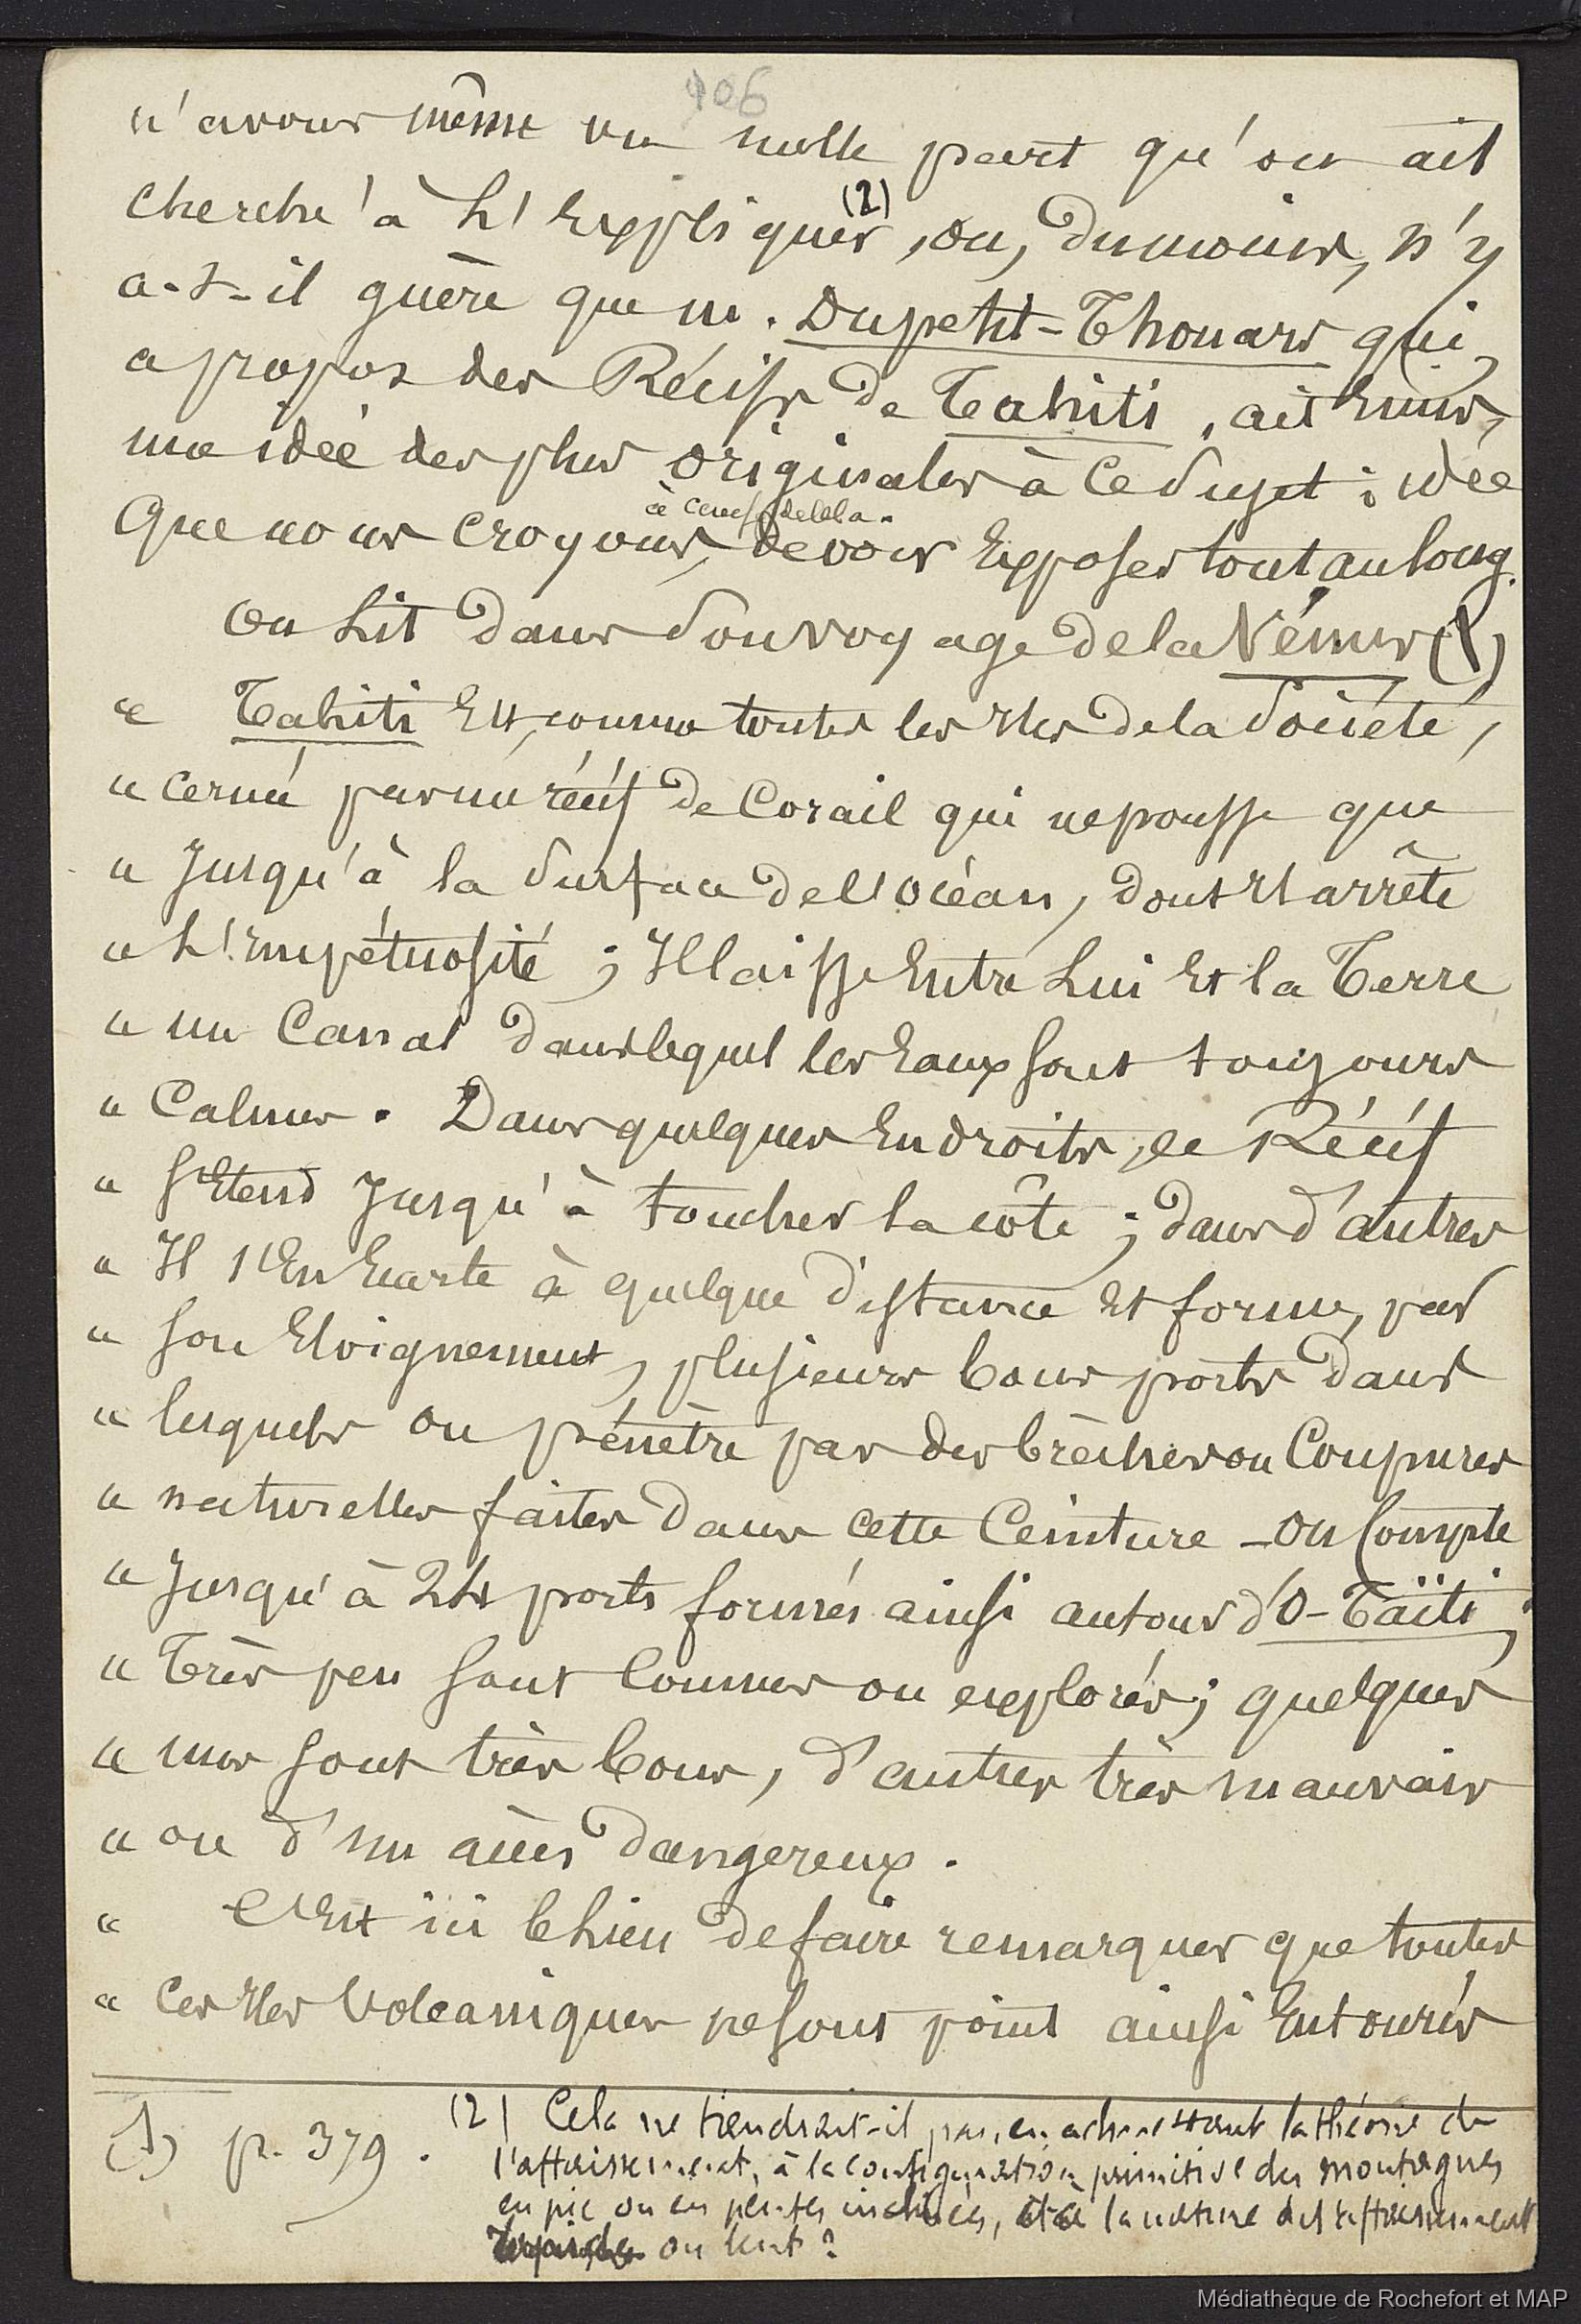 106
n'avons même vu nulle part qu'on ait
cherché à l'Expliquer (2), ou, dumoins, n'y
a-t-il guère que m. Dupetit-Thouars qui,
a propos des Récifs de Tahiti, ait Emis,
une idée des plus originales à ce Sujet ; idée
à cause de cela.
Que nous croyons, devoir Exposer tout au long.
On Lit dans Son voyage de la Vénus (1)
" Tahiti Est, comme toutes les Iles de la Société,
" cerné par un récif de Corail qui ne pousse que
" Jusqu'à la Surface de l'océan, dont Il arrête
" L'impétuosité ; Il laisse Entre Lui Et la Terre
" un Canal dans lequel les Eaux sont toujours
" Calmes. Dans quelques Endroits, le Récif
" s'Etend Jusqu'à toucher la côte ; dans d'autres
" Il s'En Ecarte à quelque distance Et forme, par
" son Eloignement, plusieurs bons ports dans
" lesquels on pénètre par des brèches ou Coupures
" naturelles faites dans cette Ceinture - On Compte
" Jusqu'à 24 ports formés ainsi autour d'O-Taïti ;
" Très peu sont Connus ou explorés ; quelques
" uns sont très bons, d'autres très mauvais
" ou d'un accès dangereux.
" C'Est ici le Lieu de faire remarquer que toutes
" Ces Iles Volcaniques ne sont point ainsi Entourés
(1) p. 379.
(2) Cela ne tiendrait-il pas, en admettant la théorie de
l'affaissement, à la configuration primitive des montagnes
en pic ou en pentes inclinées, et à la nature de l'affaissement
ou lent ?
Médiathèque de Rochefort et MAP